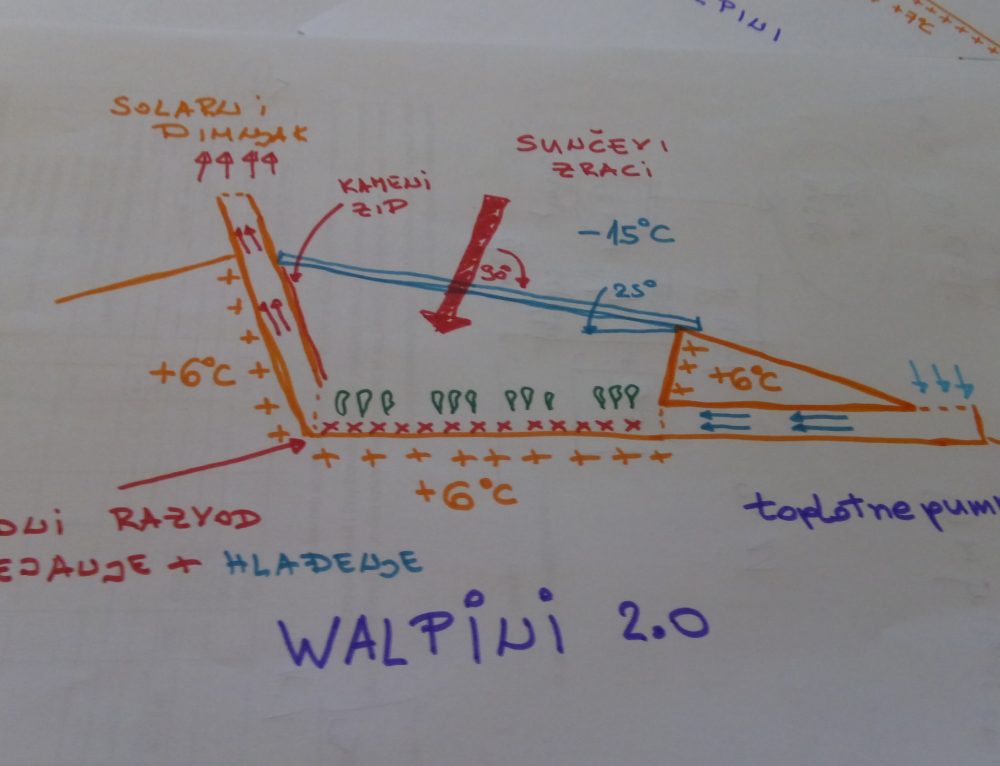 +7°C
SOLARNi
DIMNJAK
SUNČEVI
ZRACi
KAMENi
ZID
-15°C
90°
25°
+6°C
+6°C
+6°C
RAZVOD
+ HLAĐENJE
toplotne
WALPiNi 2.0